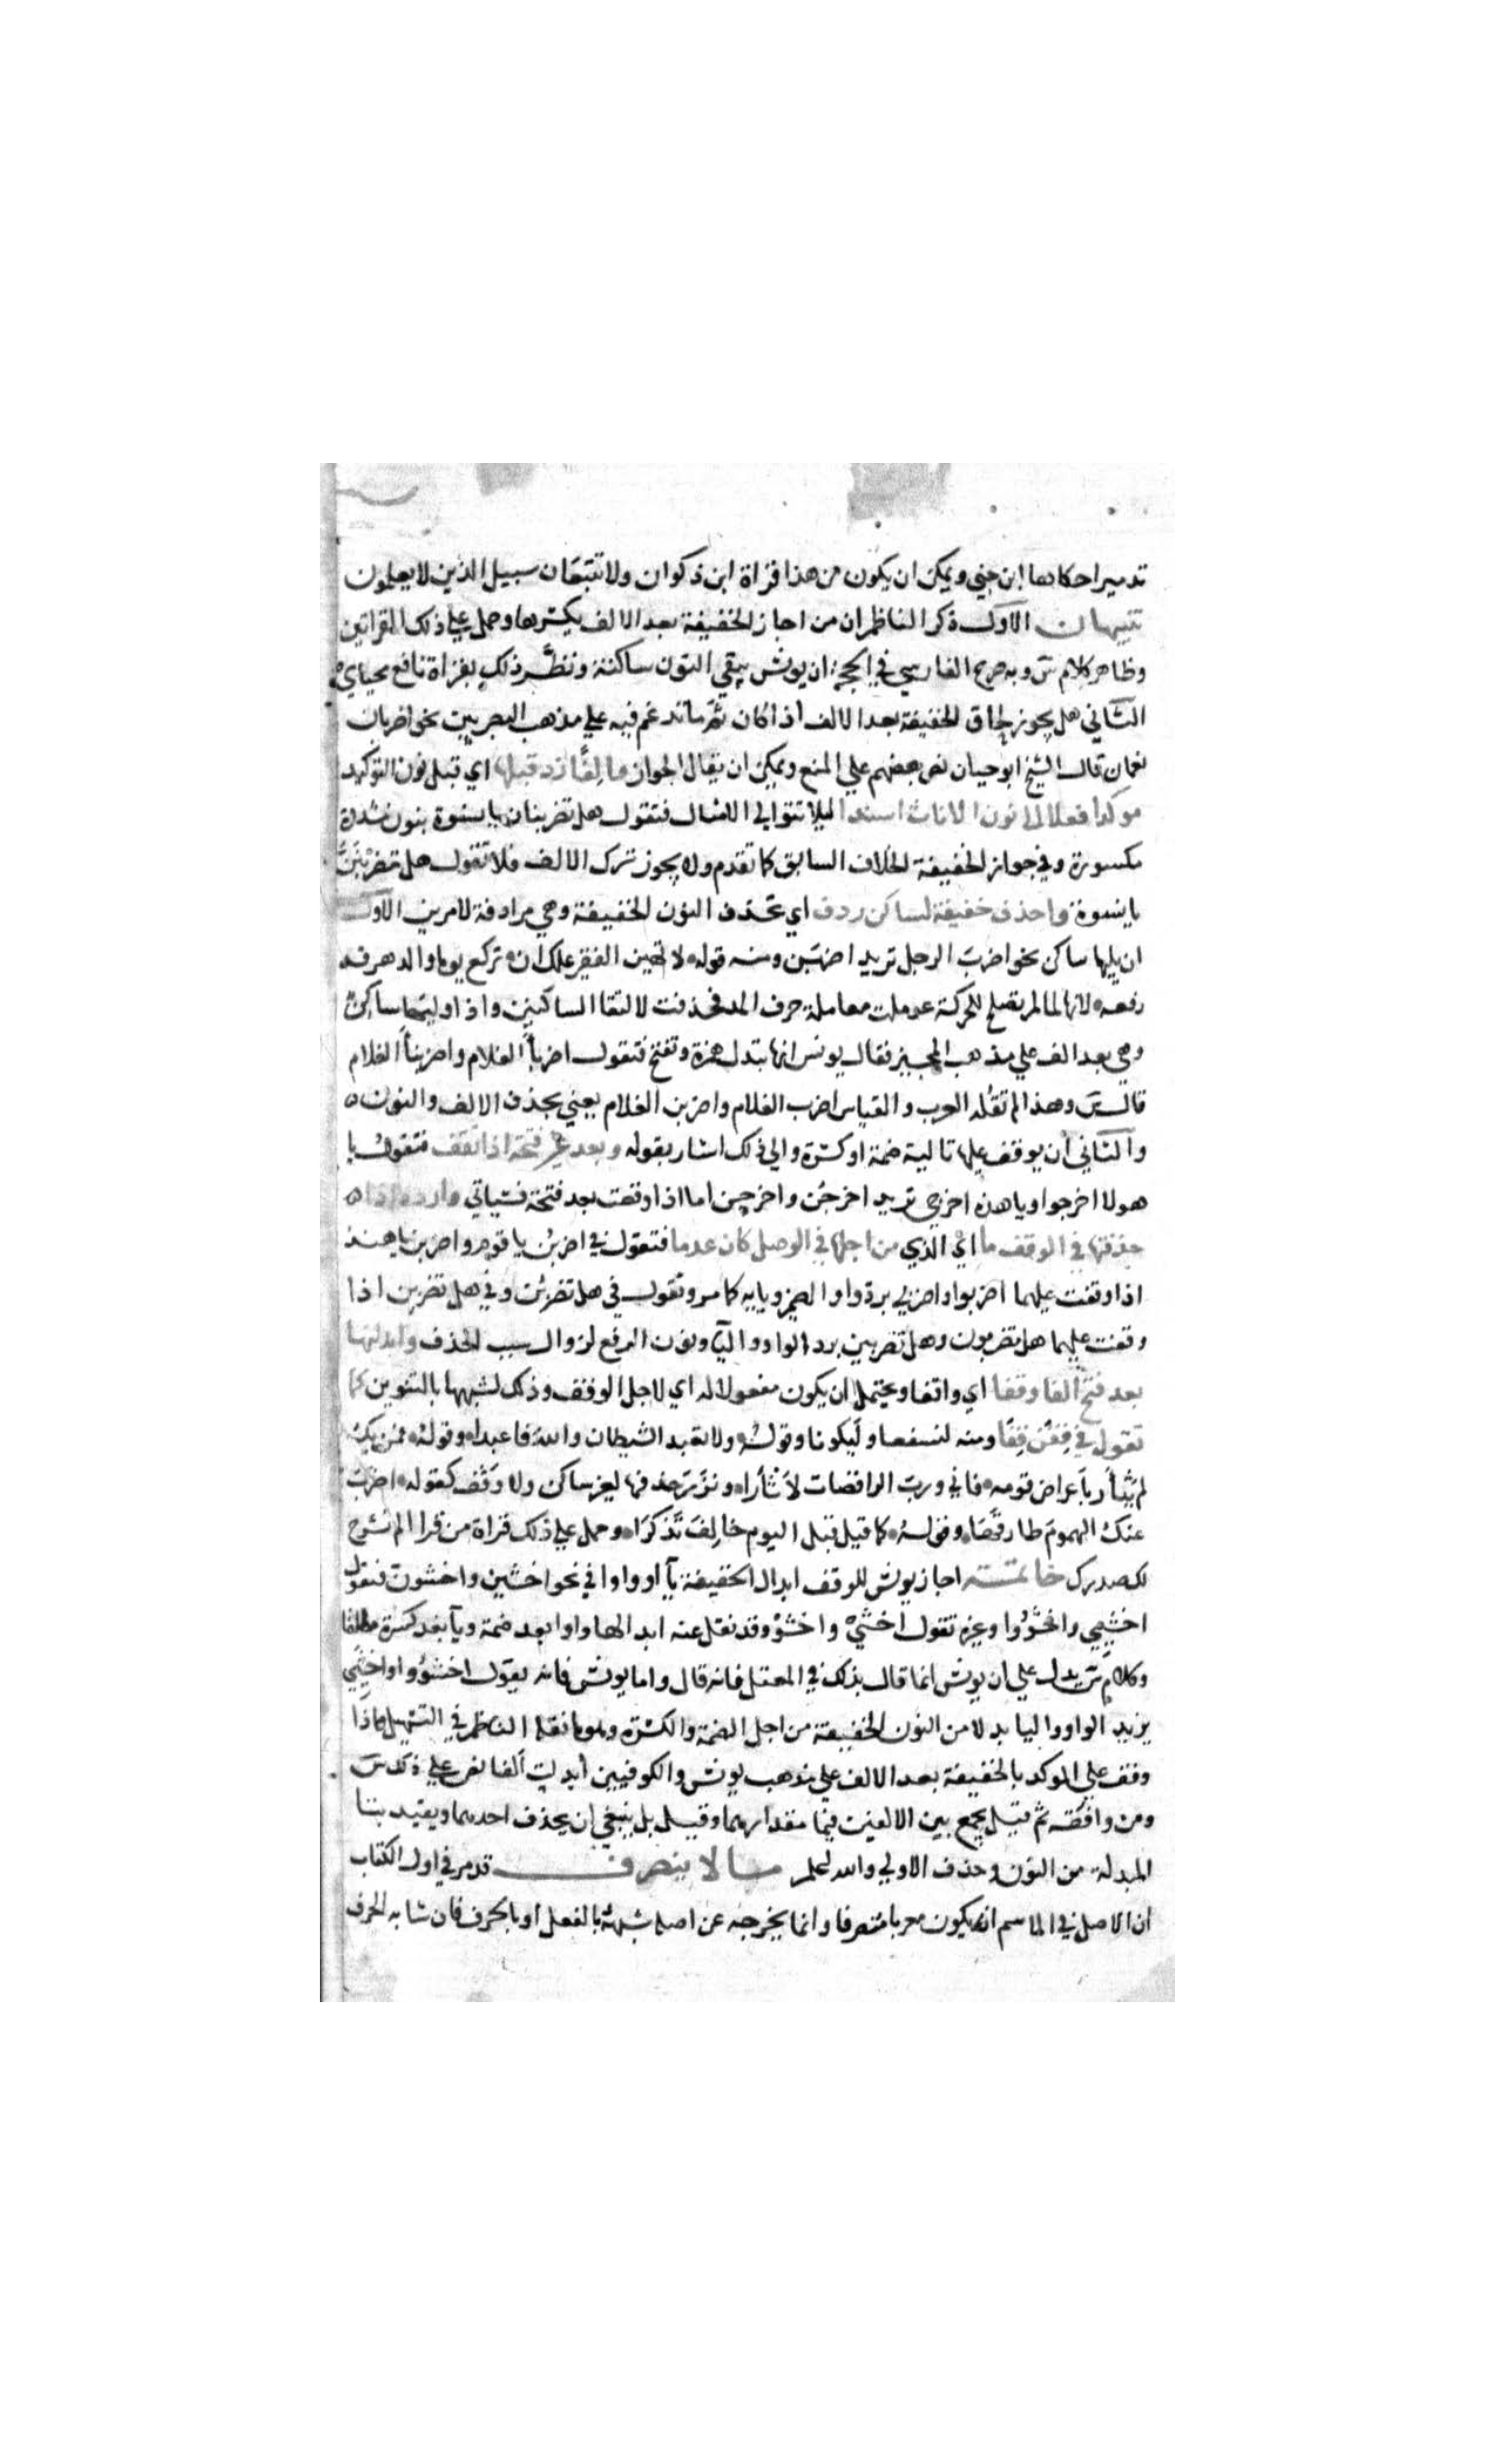 تدميرا حكاها ابن جني ويمكن ان يكون من هذا قراة ابن ذكوان ولا تتبعان سبيل الذين لا يعلمون
تنبيهان الاول ذكر الناظم ان من اجاز الخفيفة بعد الالف يكسرها وحمل علي ذلك القراتين
وظاهر كلام س وبه صرح الفارسي في الحجة ان يونس يبقي النون ساكنة ونظّر ذلك بقراة نافع محياي
الثاني هل يجوز لحاق الخفيفة بعد الالف اذا كان ثمّ ما تدغم فيه علي مذهب البصريين نحو اضربان
نعمان قال الشيخ ابو حيان نص بعضهم علي المنع ويمكن ان يقال الجواز والفًا زد قبلها اي قبل نون التوكيد
موكدا فعلا الي نون الاناث اسندا ليلا تتوالي الامثال فتقول هل تضربنان يا نسوة بنون مشددة
مكسورة وفي جواز الخفيفة الخلاف السابق كما تقدم ولا يجوز ترك الالف فلا تقول هل تضربننّ
يا نسوة واحذف خفيفة لساكن ردف اي تحذف النون الخفيفة وهي مرادفة لامرين الاول
ان يليها ساكن نحو اضربَ الرجل تريد اضربَن ومنه قوله لا تهين الفقير علك ان تركع يوما والدهر قد
رفعه لانها لما لم تصلح للحركة عوملت معاملة حرف المد فحذفت لالتقا الساكنين واذا وليها ساكن
وهي بعد الف علي مذهب المجيز فقال يونس انها تبدل همزة وتفتح فتقول اضرباَ الغلام واضربناَ الغلام
قال س وهذا لم تقُله العرب والقياس اضرب الغلام واضربن الغلام يعني بحذف الالف والنون
والثاني ان يوقف عليها تالية ضمة او كسرة والي ذلك اشار بقوله وبعد غير فتحة اذا تقف فتقول يا
هولا اخرجوا ويا هذه اخرجي تريد اخرجُن واخرجِن اما اذا وقعت بعد فتحة فسياتي واردد اذا
حذفتها في الوقف ما ايْ الذي من اجلها في الوصل كان عدما فتقول في اضربُن يا قوم واضربن يا هند
اذا وقفت عليهما اضربوا واضربي برد واو الضمير ويايه كما مر وتقول في هل تضربُن وفي هل تضربِن اذا
وقفت عليهما هل تضربون وهل تضربين برد الواو واليآ ونون الرفع لزوال سبب الحذف وابدلنها
بعد فتح الفا وقفا اي واقفا ويحتمل ان يكون مفعولا له اي لاجل الوقف وذلك لشبهها بالتنوين كما
تقول في قِفَن قِفَا ومنه لنسفعا وليكونا وقوله ولا تعبد الشيطان والله فاعبدا وقوله فمن يك
لم يثأر باعراض قومه فاني ورب الراقصات لاثأرا ونَدَر حذفها لغير ساكن ولا وقف كقوله اضربَ
عنك الهموم طارقها وقوله كما قيل قبل اليوم خالِفَ تذكرا وحمل علي ذلك قراة من قرا الم نشرح
لك صدرك خاتمة اجاز يونس للوقف ابدال الخفيفة يآ او واوا في نحو اخشين واخشون فتقول
اخشيي واخشووا وغيره تقول اخشيْ واخشوْ وقد نقل عنه ابدالها واوا بعد ضمة ويآ بعد كسرة مطلقا
وكلام س يدل علي ان يونس انما قال بذلك في المعتل فانه قال واما يونس فانه يقول اخشووا واخشيي
يزيد الواو واليا بدلا من النون الخفيفة من اجل الضمة والكسرة وهو ما نقله الناظم في التسهيل واذا
وقف علي الموكد بالخفيفة بعد الالف علي مذهب يونس والكوفيين ابدلت الفا نص علي ذلك س
ومن وافقه ثم قيل يجمع بين الالفين فيما مقدارهما وقيل بل ينبغي ان يحذف احدهما ويقيد بننا
المبدلة من النون وحذف الاولي والله اعلم ما لا ينصرف قد مر في اول الكتاب
ان الاصل في الاسم ان يكون معربا منصرفا وانما يخرجه عن اصله شبهه بالفعل او بالحرف فان شابه الحرف